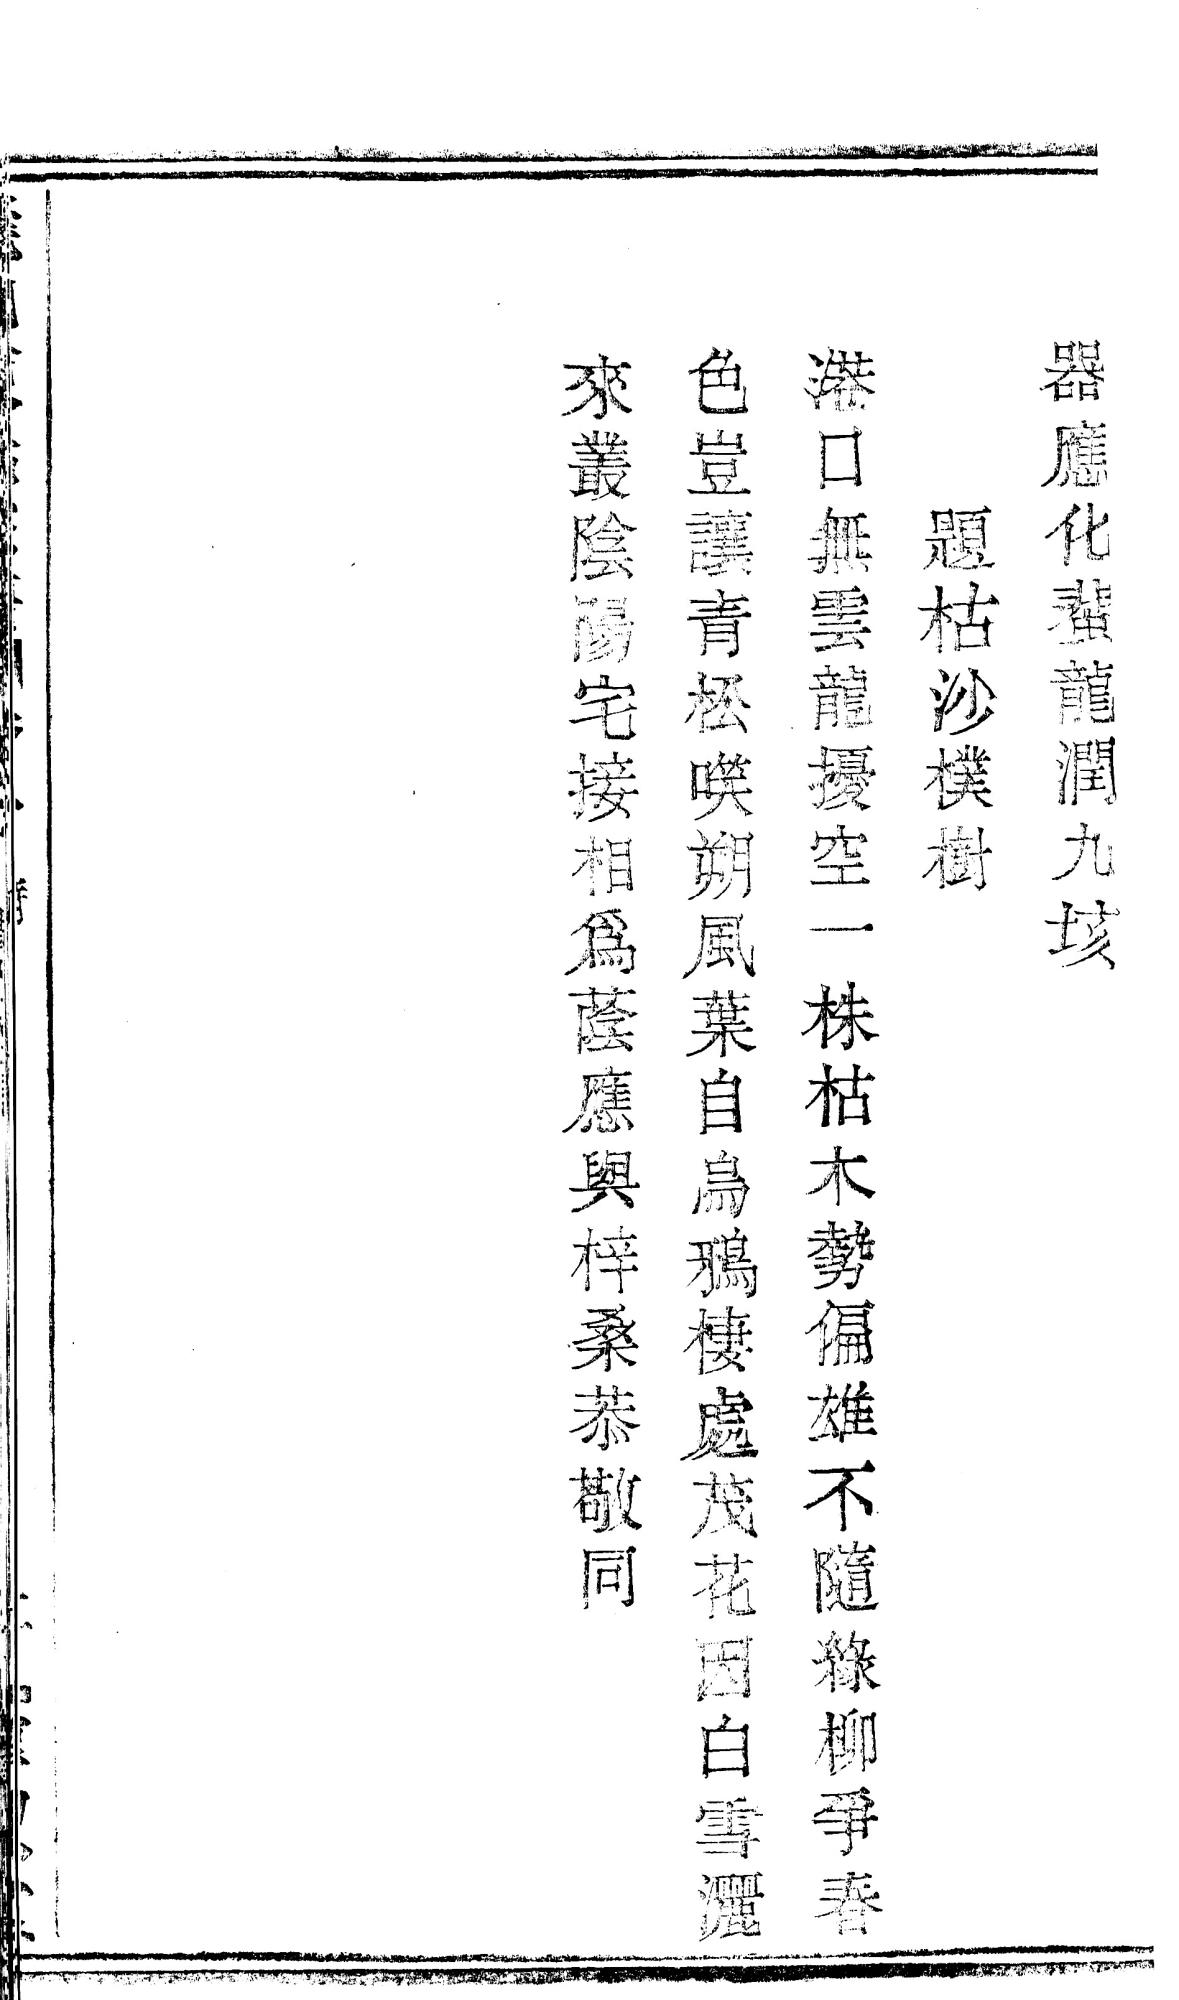 器應化蛩龍潤九垓
題枯沙樸樹
港口無雲龍擾空一株枯木勢偏雄不隨綠柳爭春
色豈讓青松嘆朔風葉自烏鴉棲處茂花因白雪灑
來叢陰陽宅接相爲蔭應與梓桑恭敬同